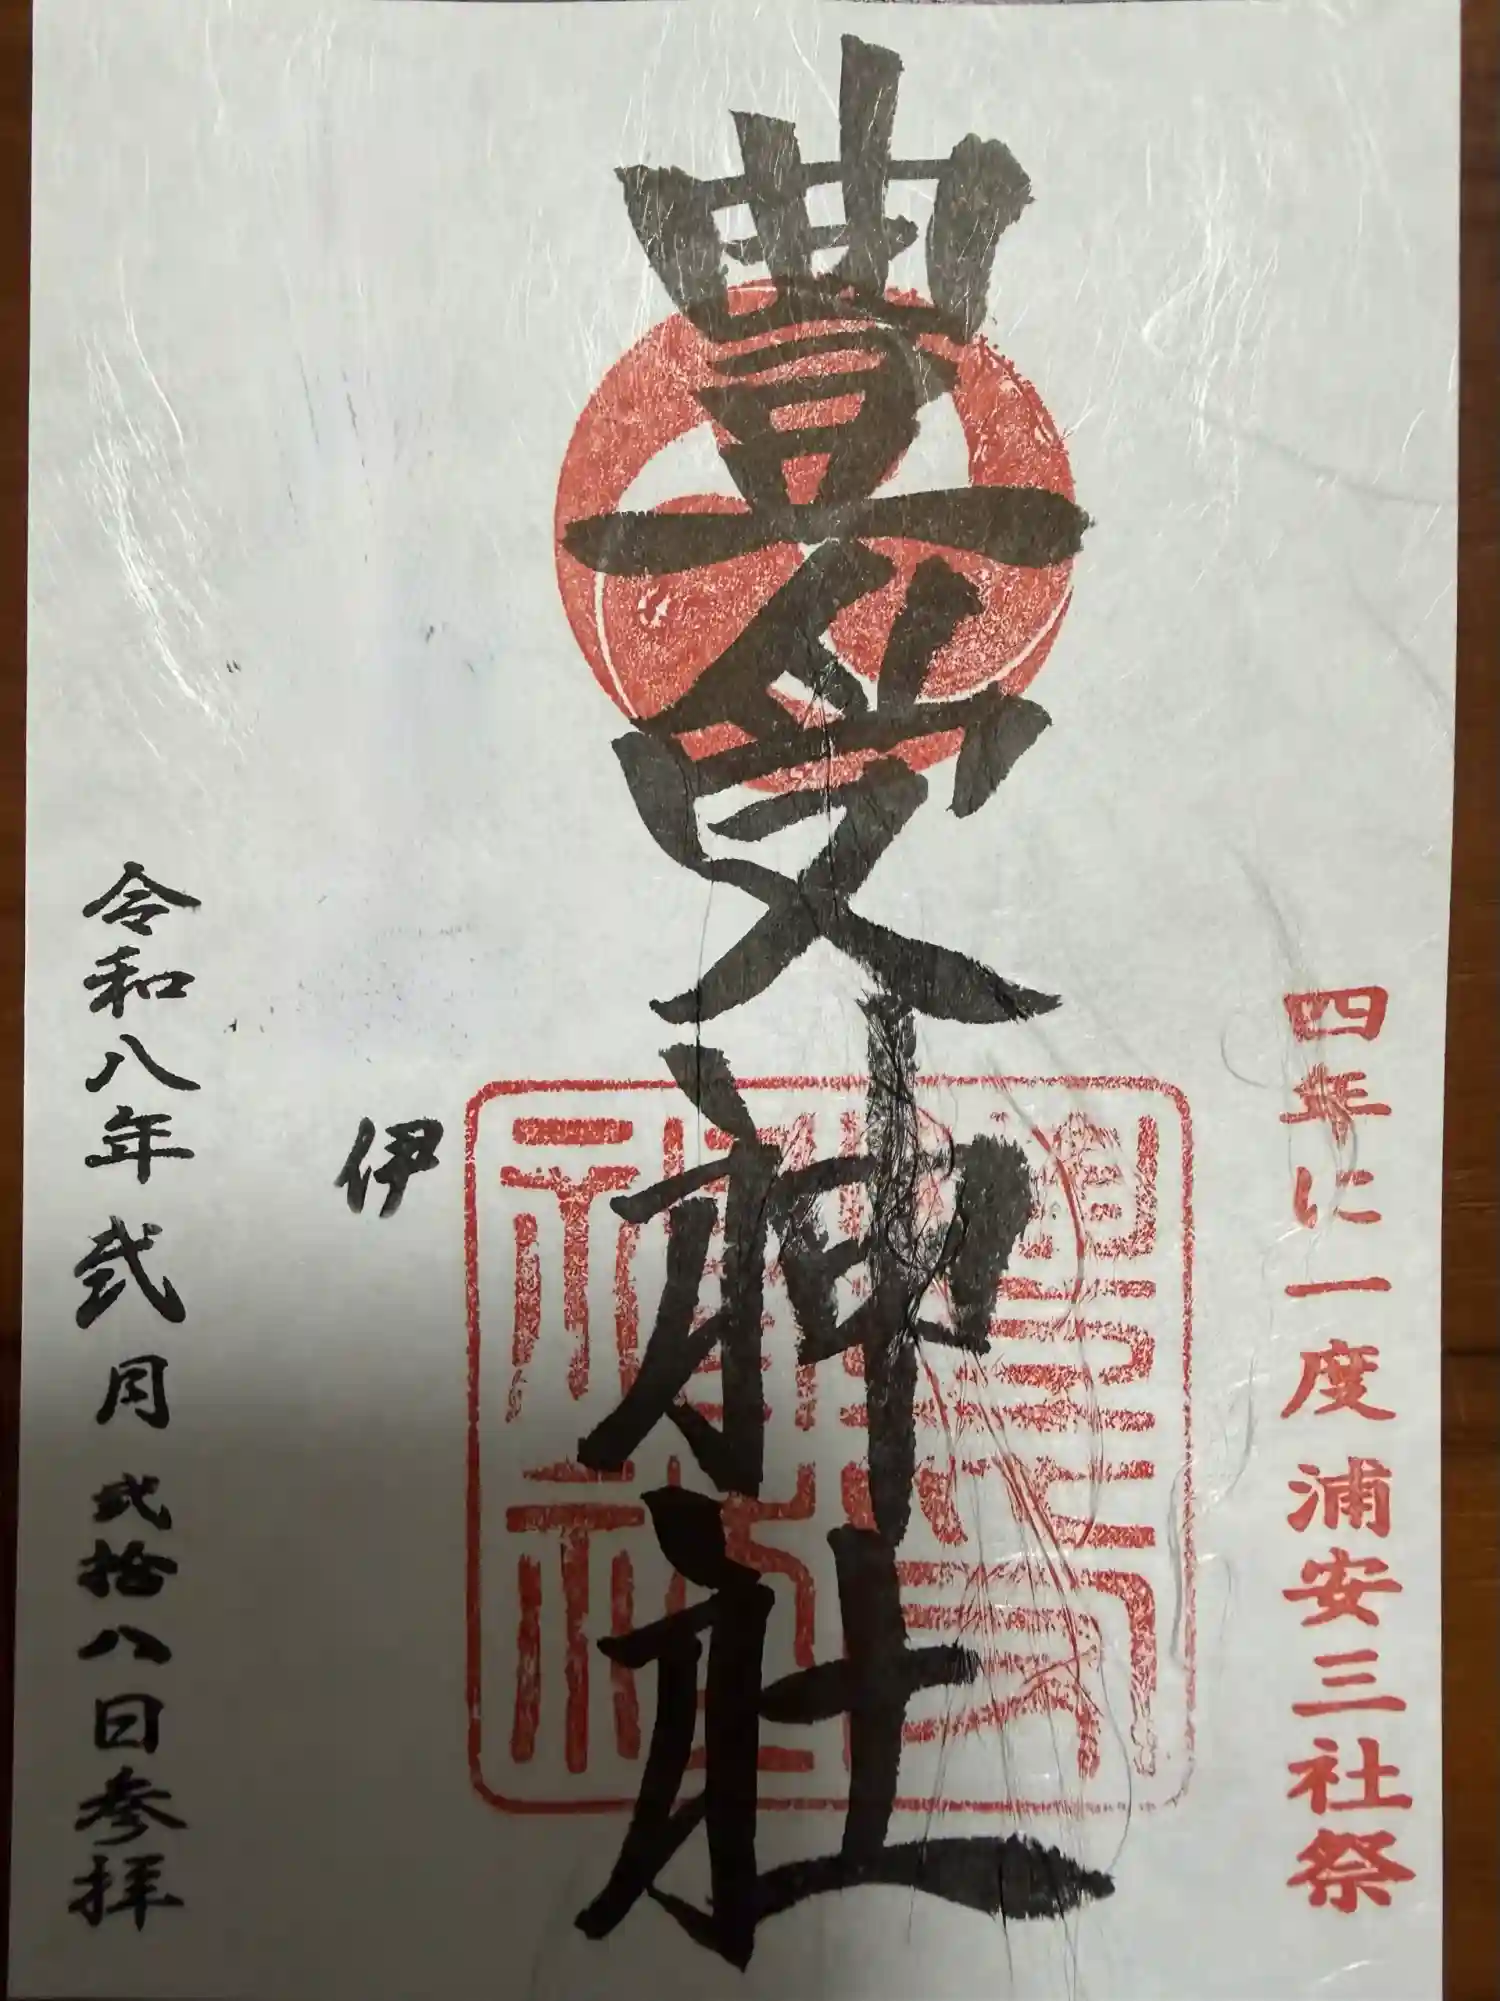 四年に一度 浦安三社祭
豊受神社
伊
令和八年 弐月 弐拾八日参拝